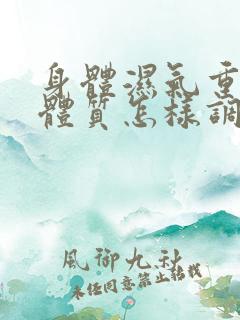 身體濕氣重
體質怎樣調
風御九秋
未经同意禁止转载